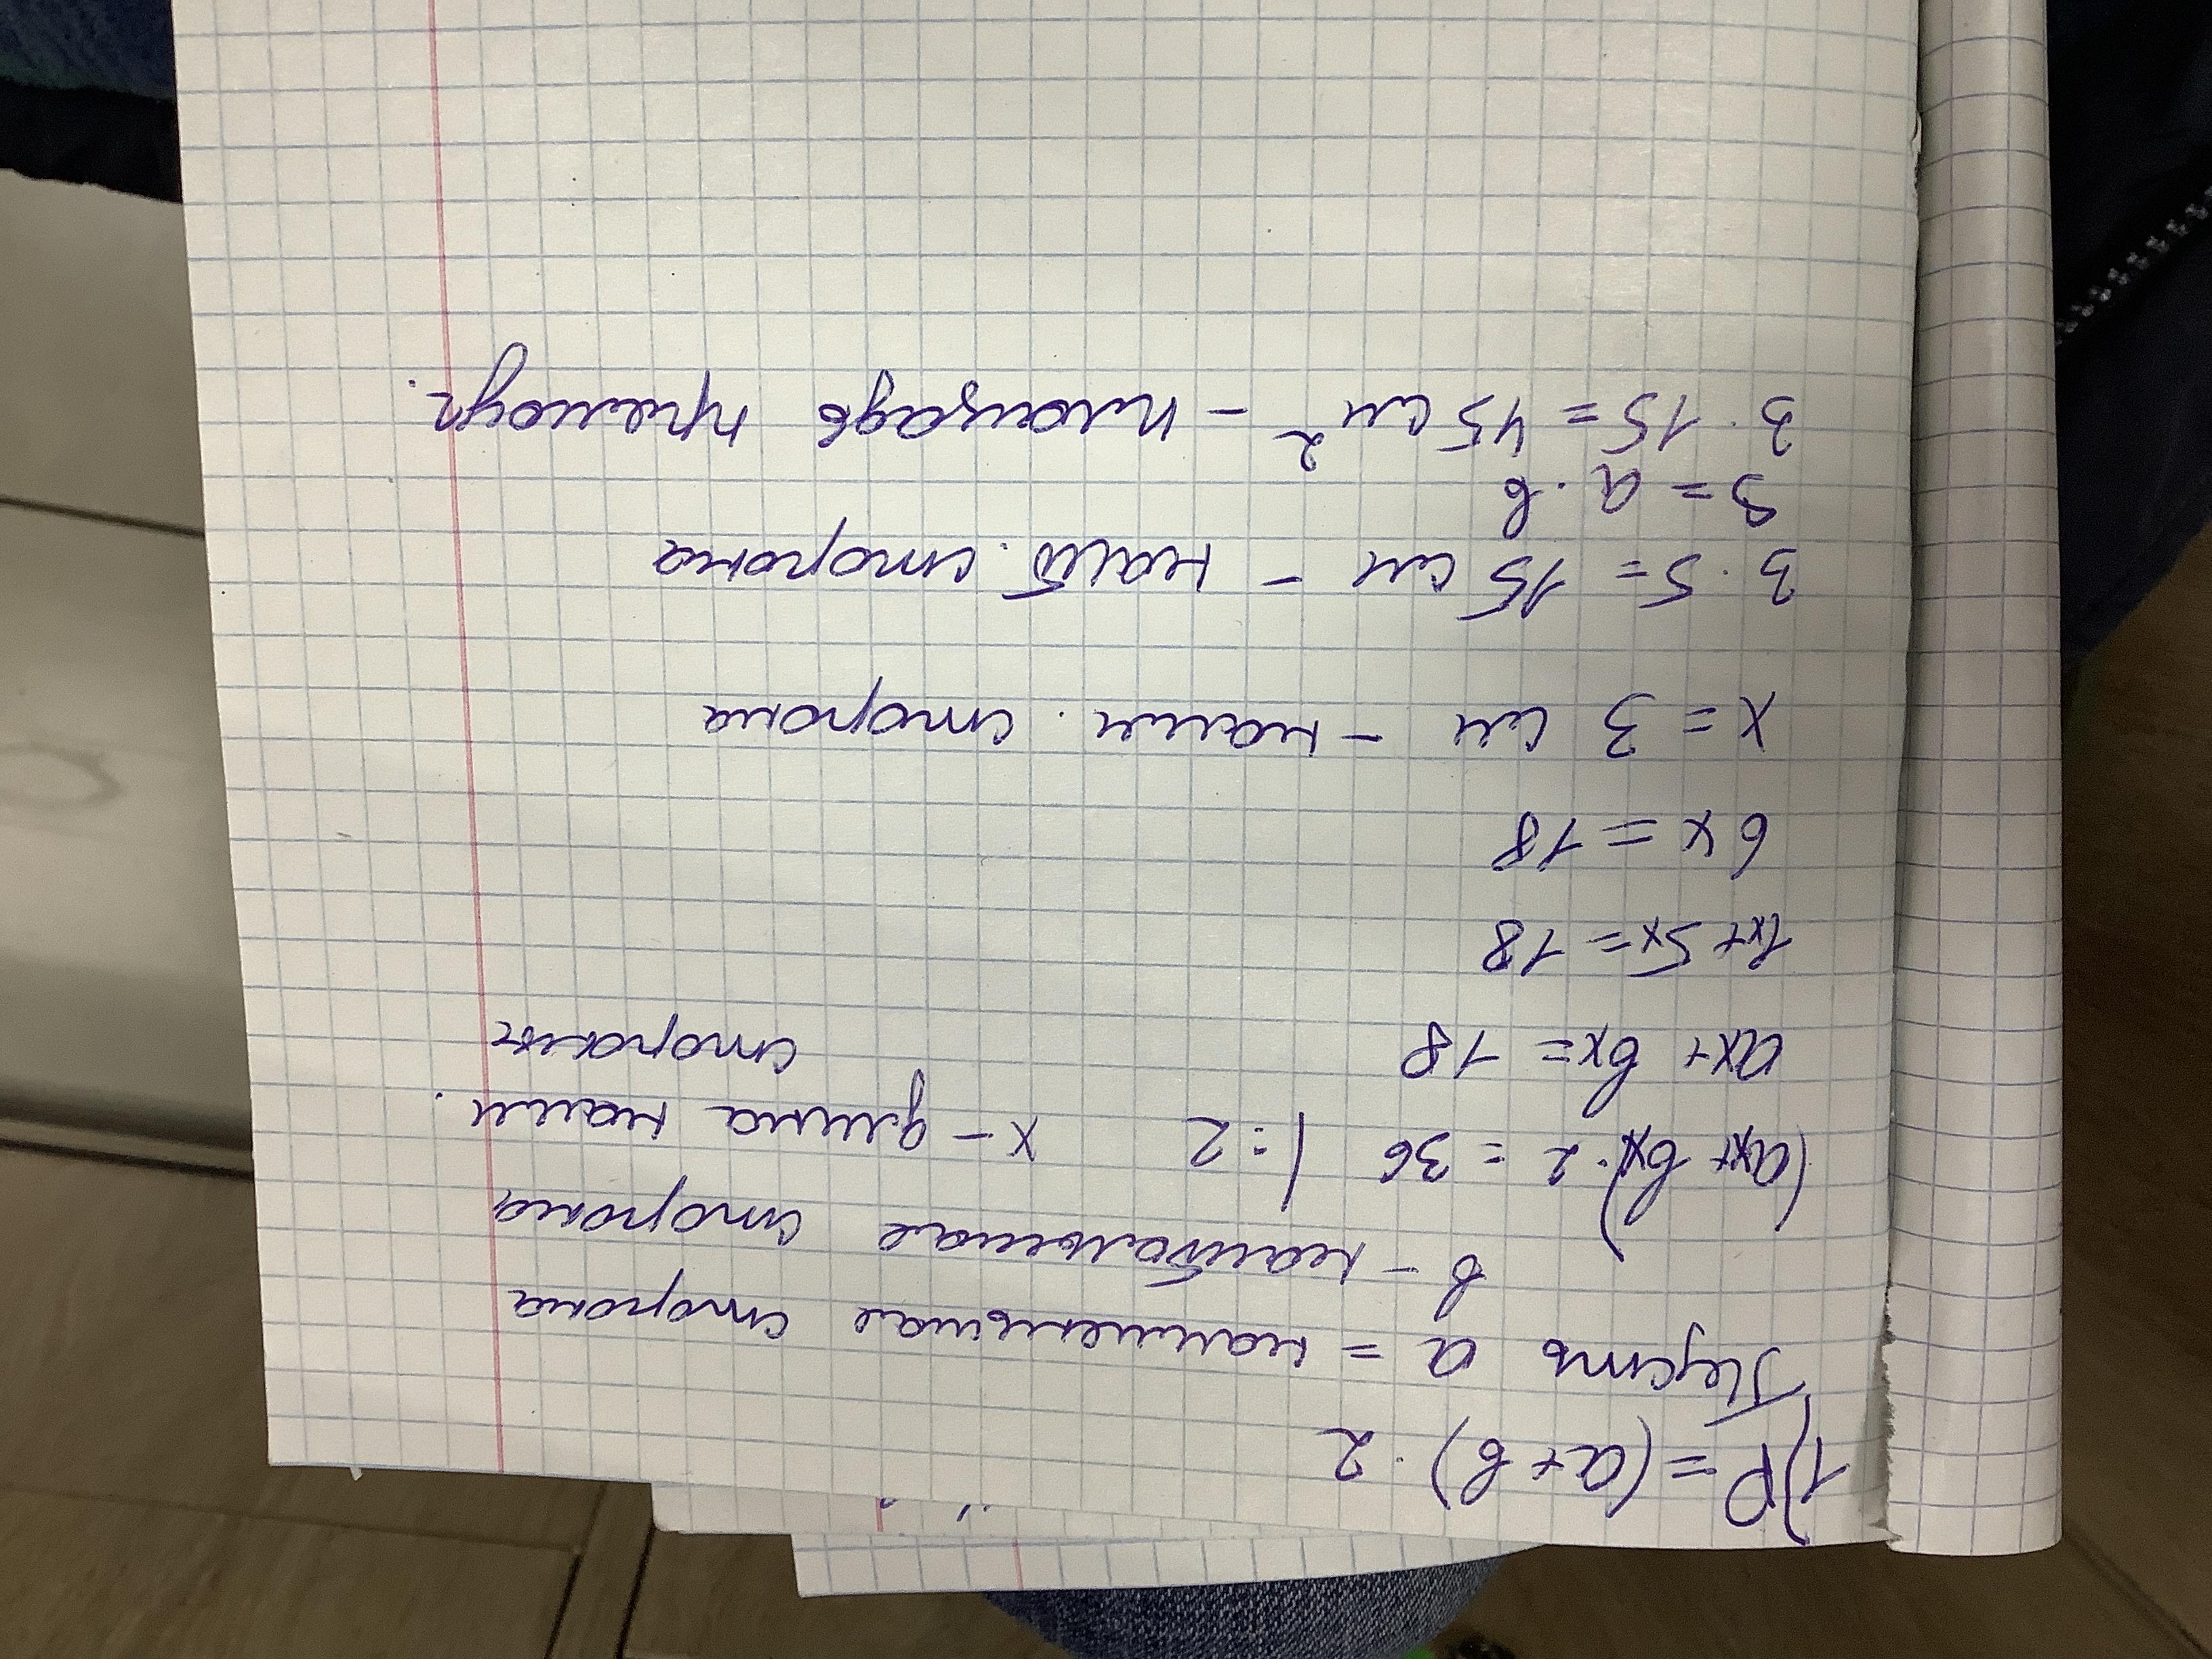 1) P = (a + в) · 2
Пусть a = наименьшая сторона
в - наибольшая сторона
(ax + вx) · 2 = 36 | : 2 x - длина наим.
стороны
ax + вx = 18
1x + 5x = 18
6x = 18
x = 3 см - наим. сторона
3 · 5 = 15 см - наиб. сторона
S = a · в
3 · 15 = 45 см² - площадь прямоуг.